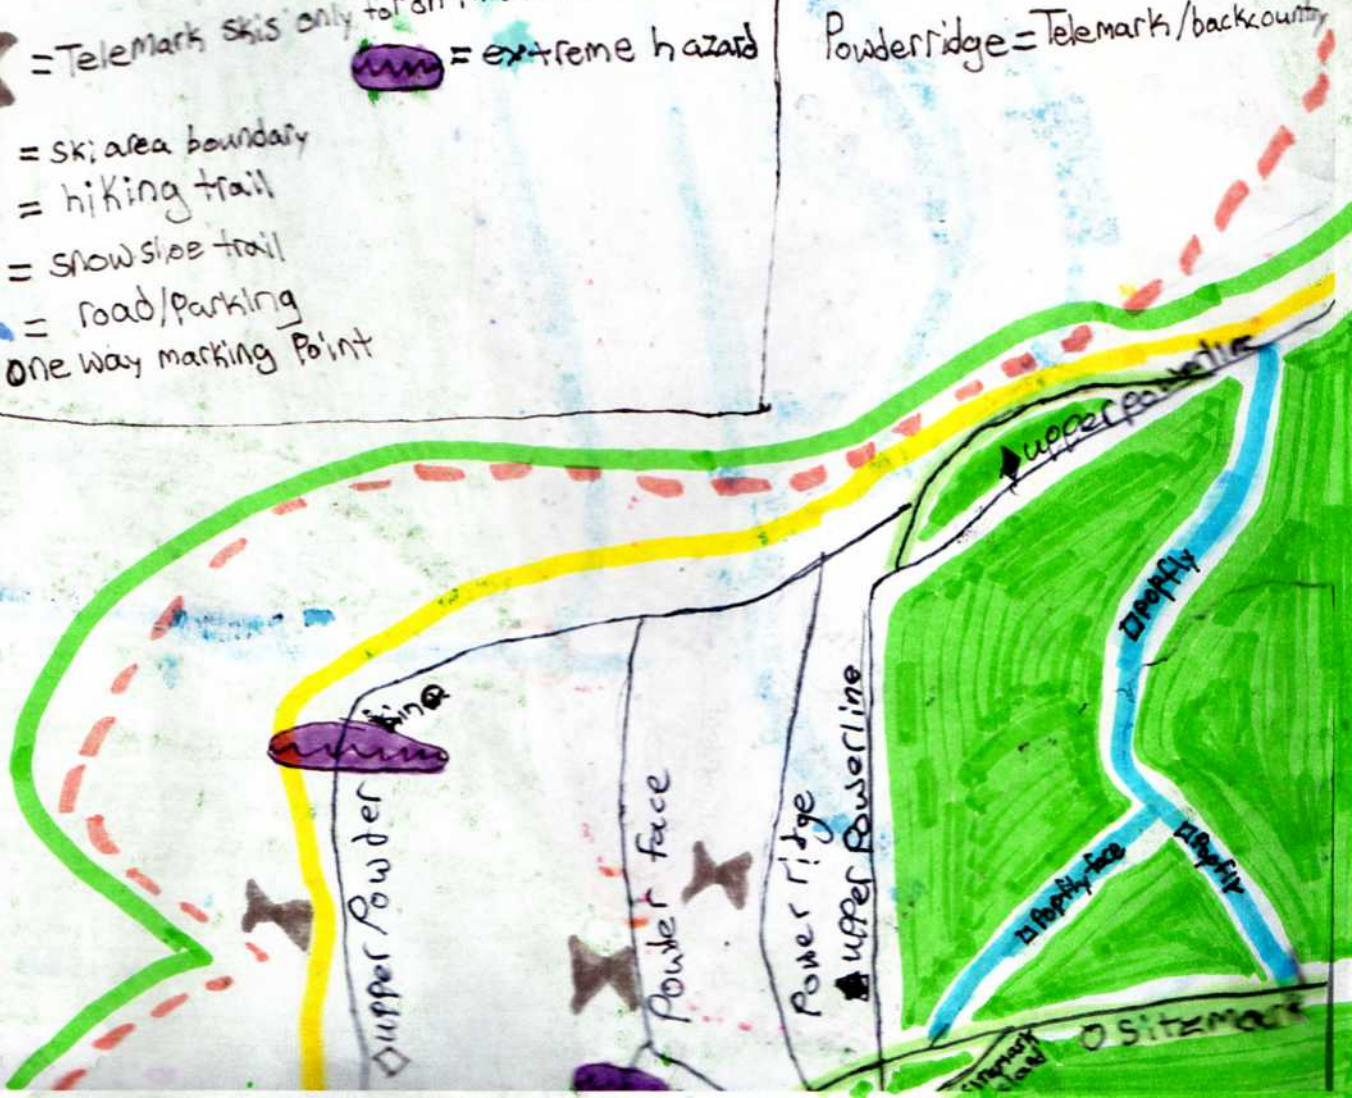 =Telemark skis only
= extreme hazard
Powderridge=Telemark/backcountry
= ski area boundary
= hiking trail
= snowshoe trail
= road/parking
one way marking Point
upper powerline
Popfly
upper Powder
Powder face
Power ridge
upper Powerline
Popfly face
Popfly
Sitzmark